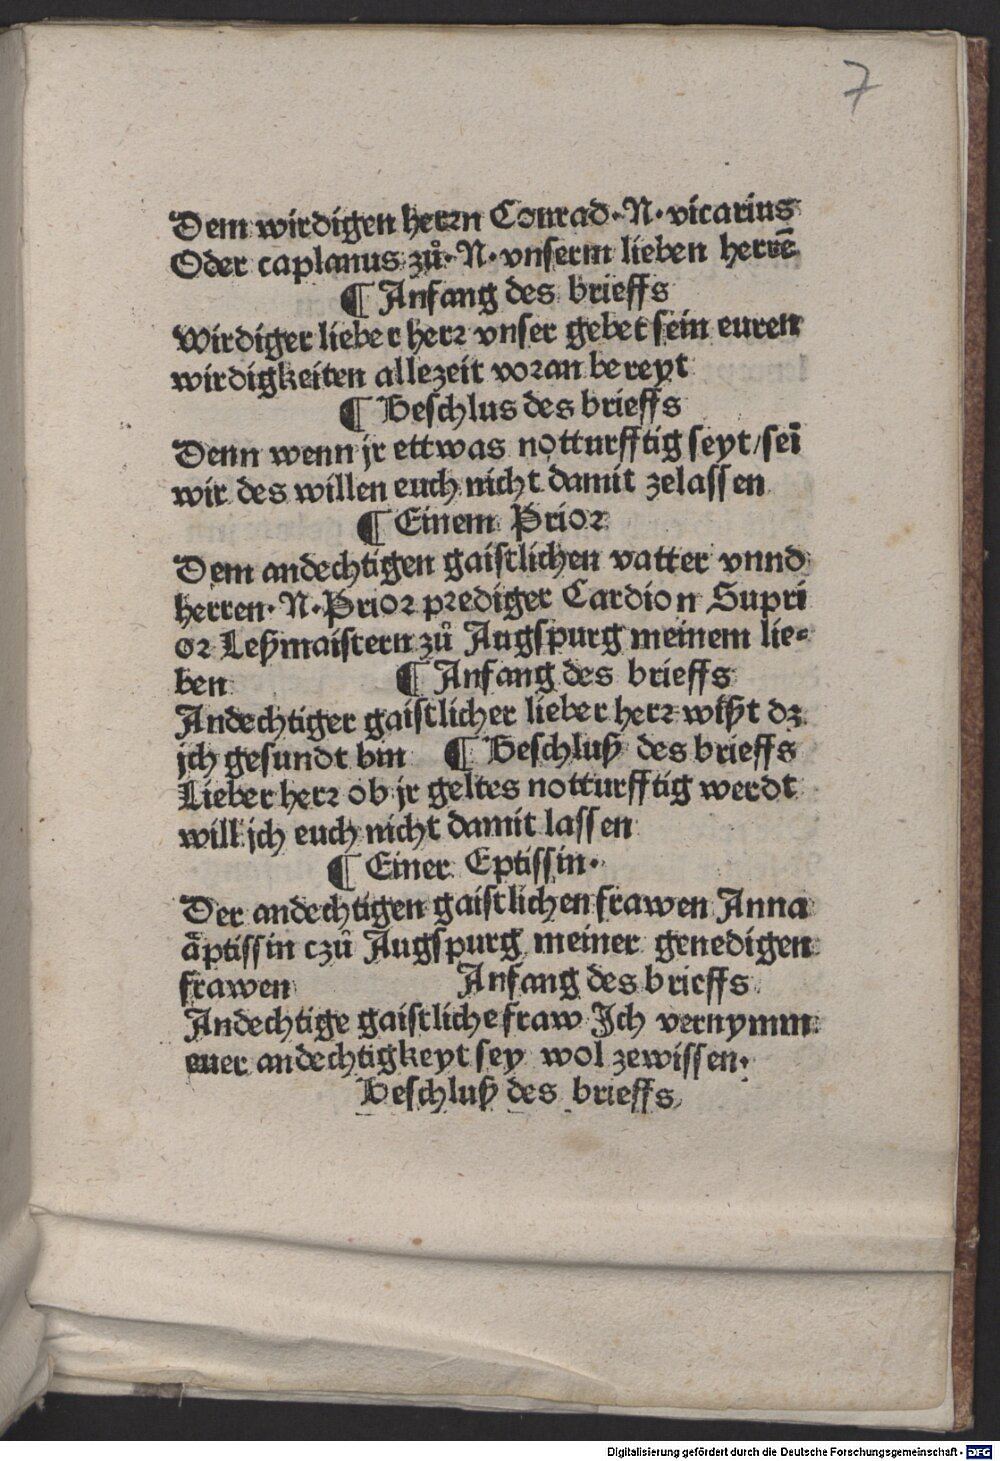 7
Dem wirdigen herꝛn Conrad·N·vicarius
Oder caplanus zů·N·vnserm lieben herrē
¶ Anfang des brieffs
Wirdiger lieber herꝛ vnser gebet sein euren
wirdigkeiten allezeit voꝛan bereyt
¶ Beschlus des brieffs
Denn wenn jr ettwas notturfftig seyt/seī
wir des willen euch nicht damit zelassen
¶ Einem Prioꝛ
Dem andechtigen gaistlichen vatter vnnd
herren·N·Prioꝛ pꝛediger Cardion Supri
oꝛ Leßmaistern zů Augspurg meinem lie⸗
ben ¶ Anfang des brieffs
Andechtiger gaistlicher lieber herꝛ wißt dz
jch gesundt bin ¶ Beschluß des brieffs
Lieber herꝛ ob jr geltes notturfftig werdt
will jch euch nicht damit lassen
¶ Einer Eptissin·
Der andechtigen gaistlichen frawen Anna
äptissin czů Augspurg meiner genedigen
frawen Anfang des brieffs
Andechtige gaistliche fraw Ich vernymm
euer andechtigkeyt sey wol zewissen·
Beschluß des brieffs
Digitalisierung gefördert durch die Deutsche Forschungsgemeinschaft - DFG